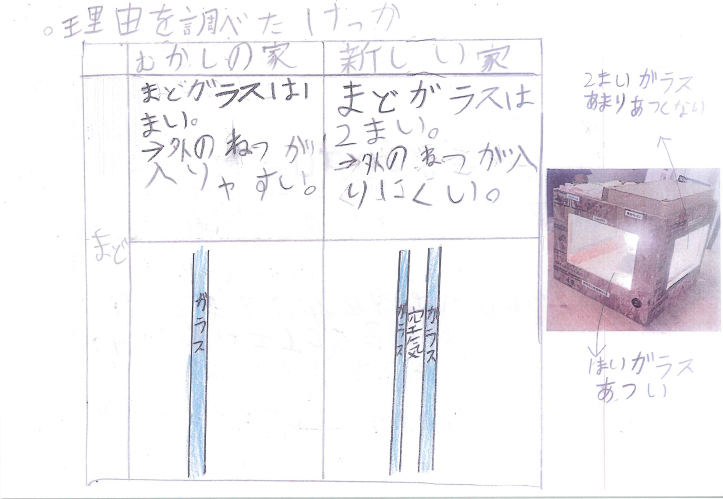 ○理由を調べたけっか
むかしの家
新しい家
まどガラスは1
まい。
→外のねつが
入りやすい。
まどガラスは
2まい。
→外のねつが入
りにくい。
まど
ガラス
ガラス
空気
ガラス
2まいガラス
あまりあつくない
1まいガラス
あつい